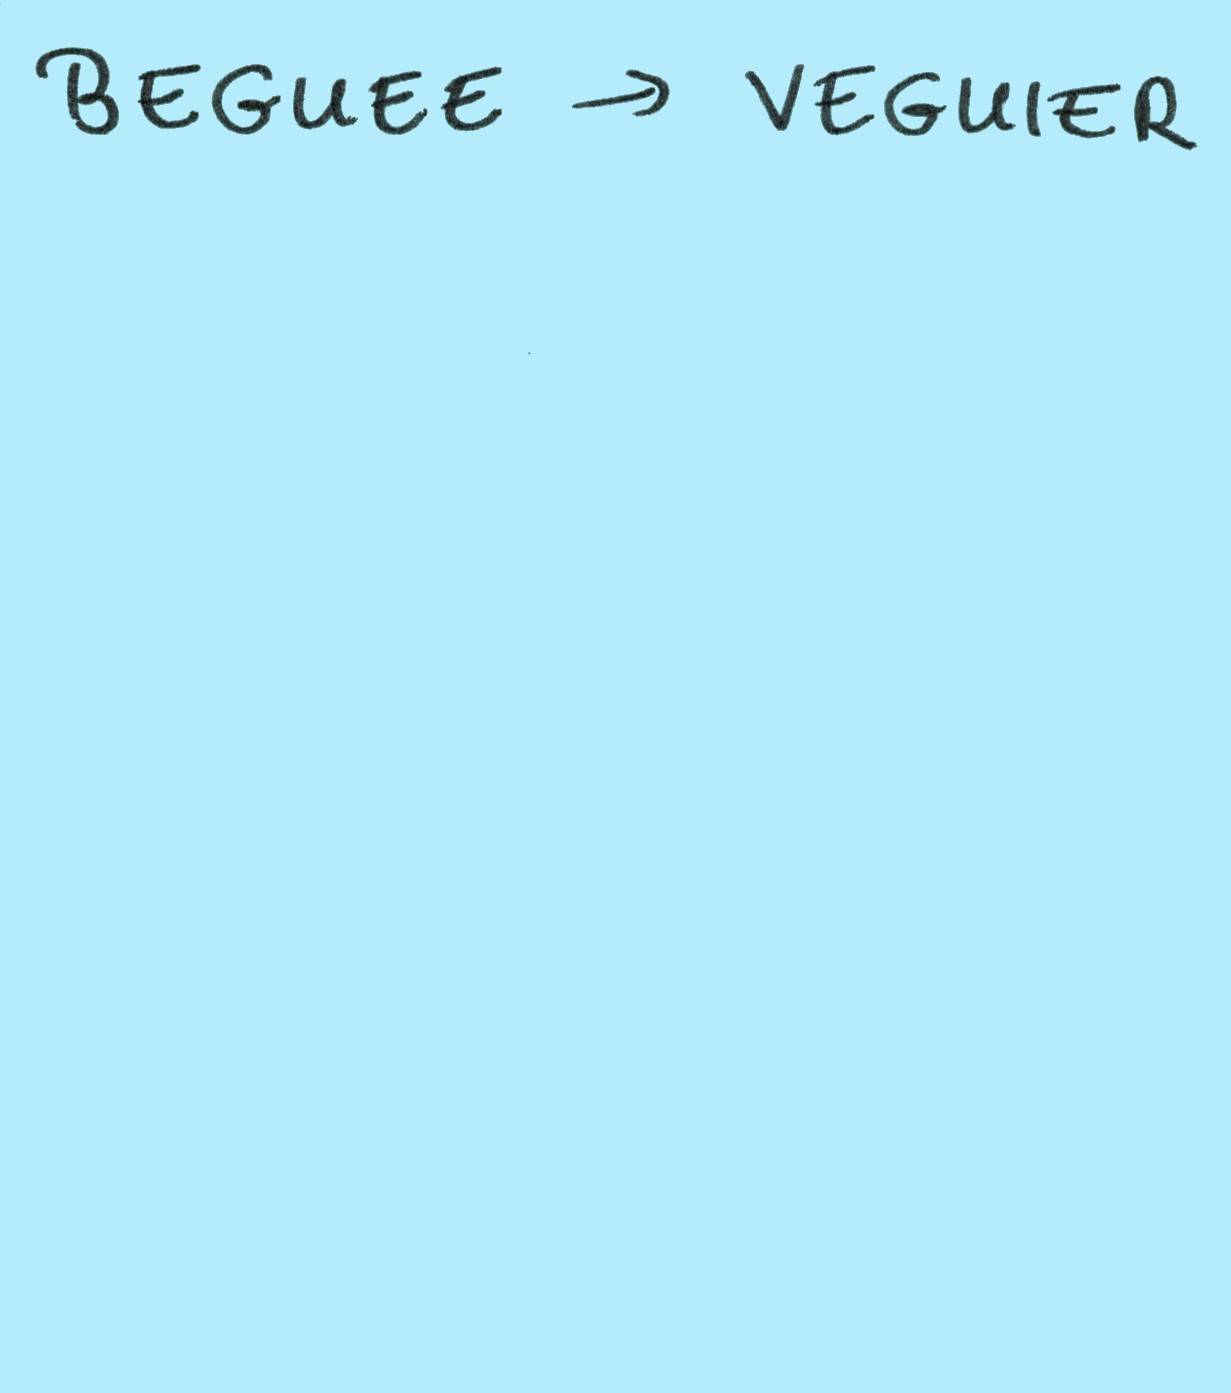 BEGUEE → VEGUIER